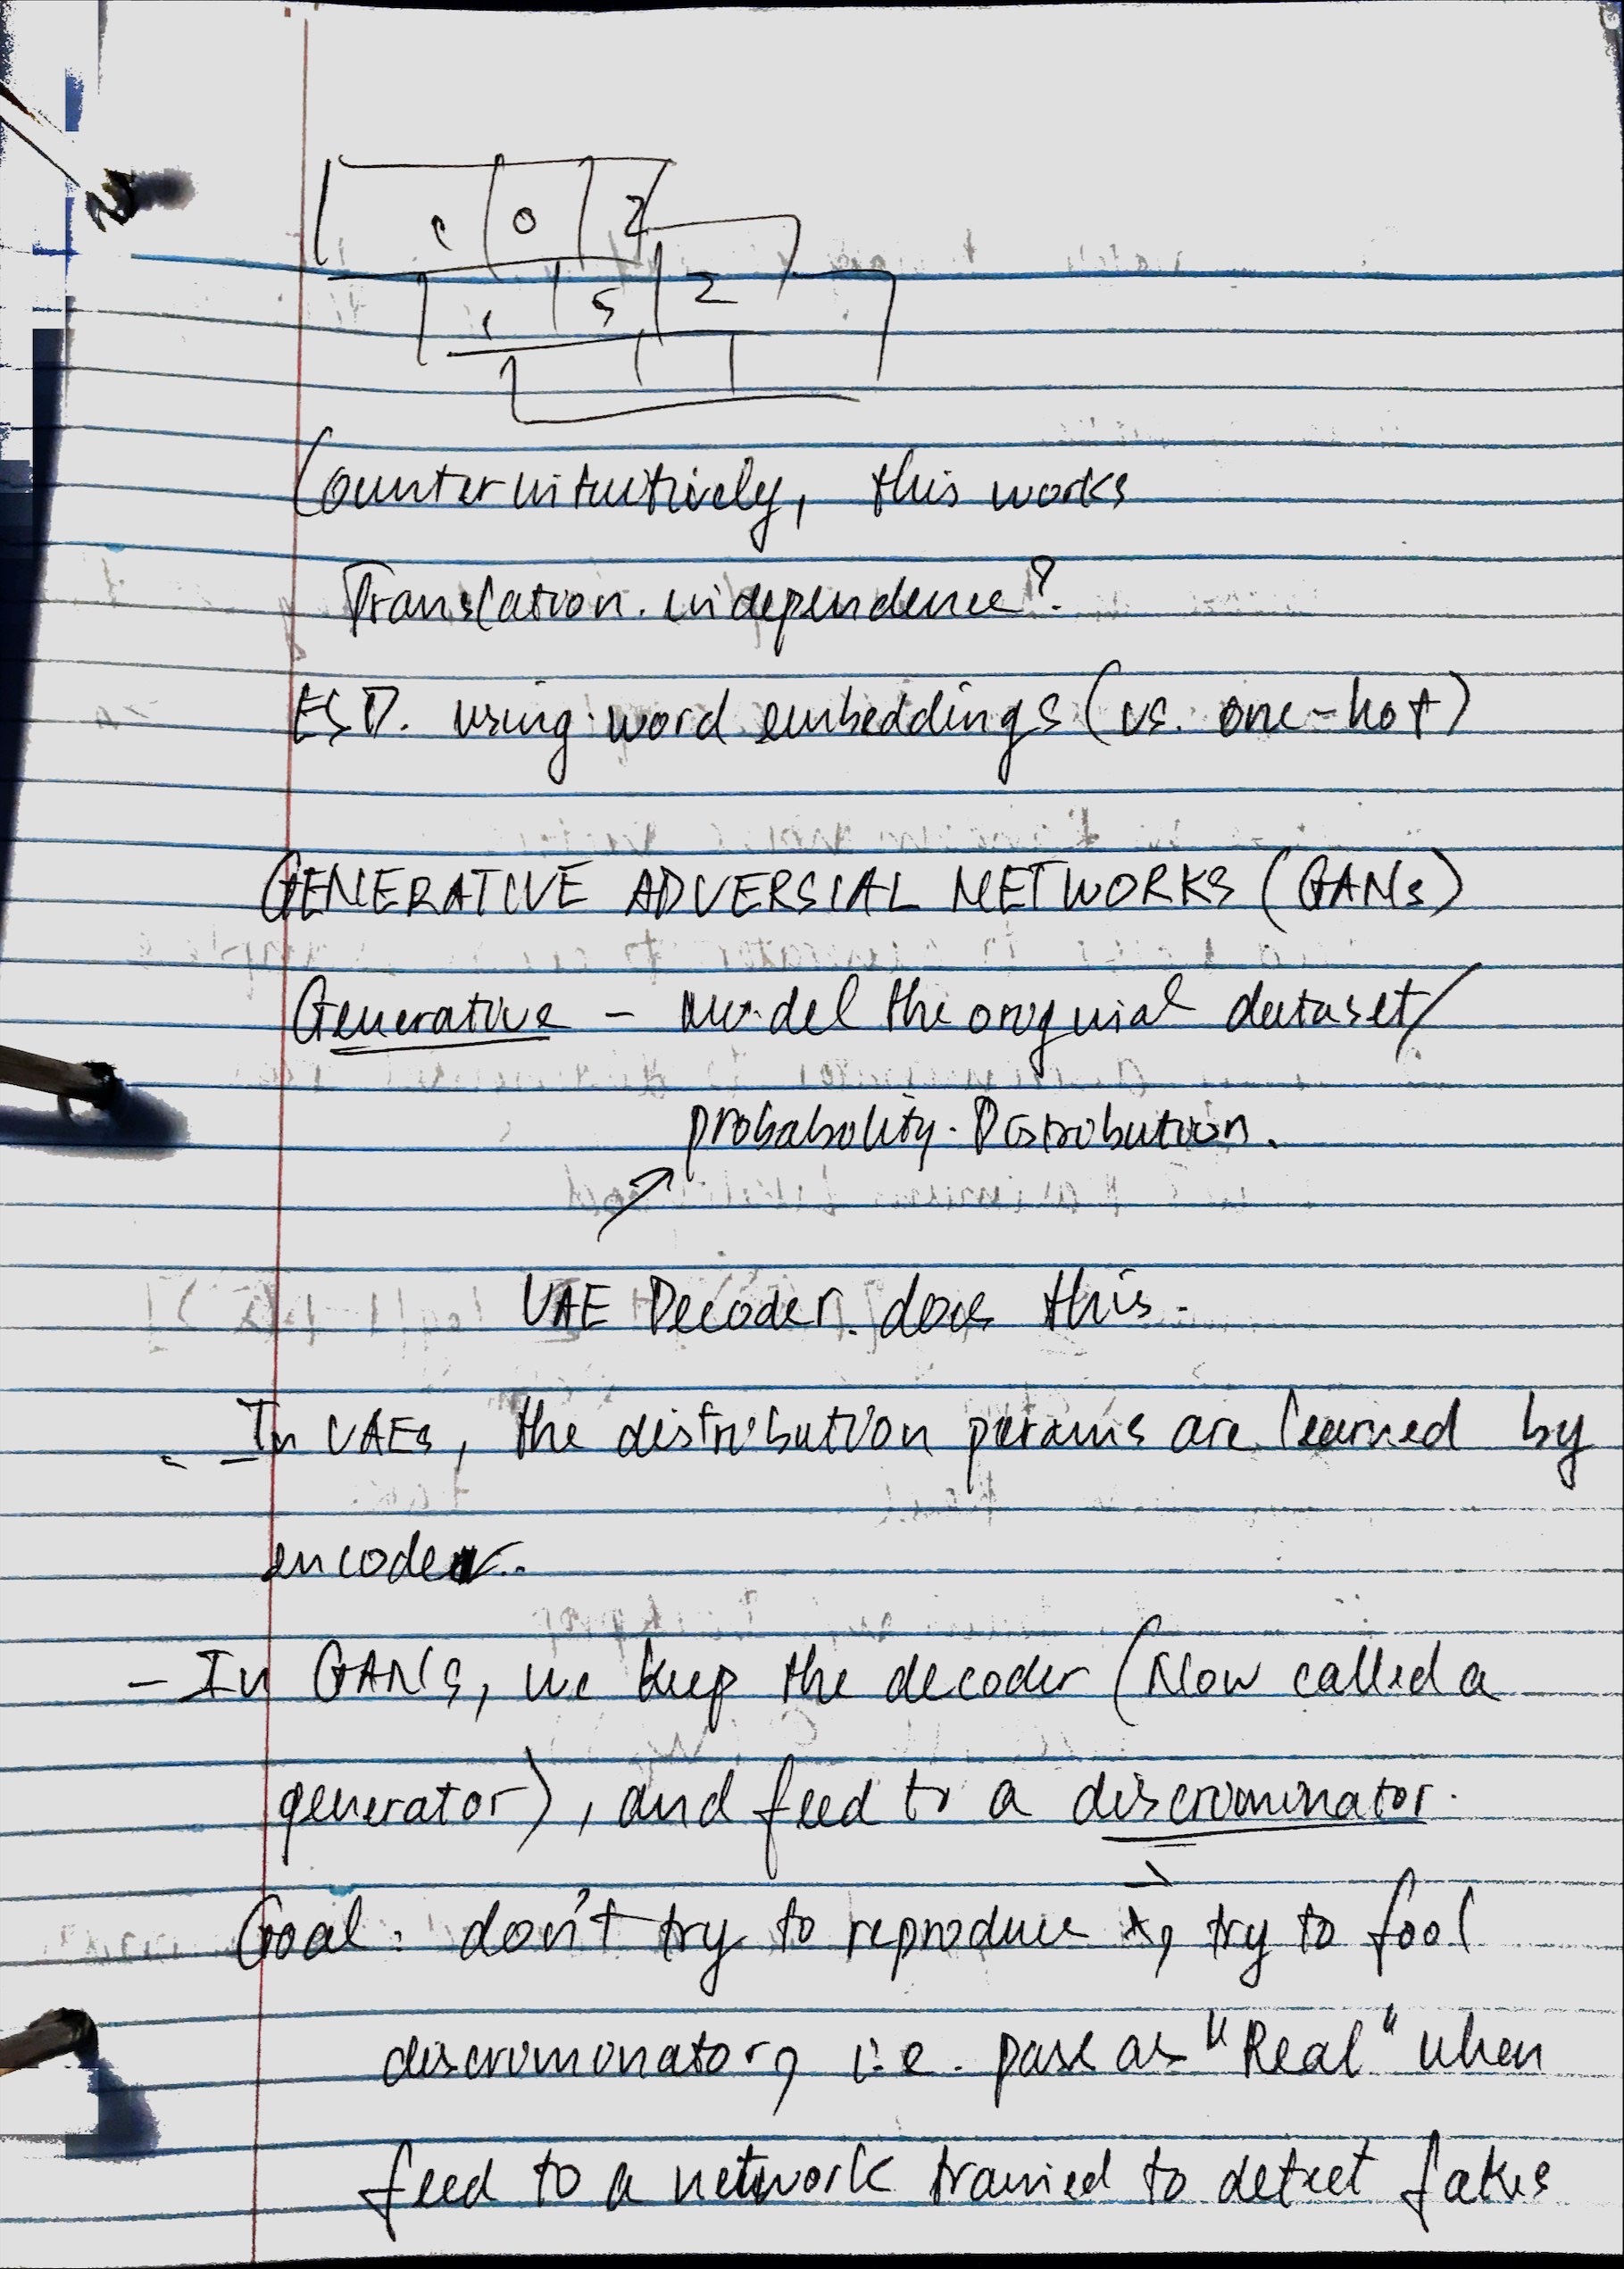 0 2
5 2
Counterintuitively, this works
Translation independence?
ESP. using word embeddings (vs. one-hot)
GENERATIVE ADVERSIAL NETWORKS (GANs)
Generative - Model the original dataset/
probability Distribution.
VAE Decoder does this.
- In VAEs, the distribution params are learned by
encoder.
- In GANs, we keep the decoder (Now called a
generator), and feed to a discriminator.
Goal: don't try to reproduce x, try to fool
discriminator, i.e. pass as "Real" when
feed to a network trained to detect fakes